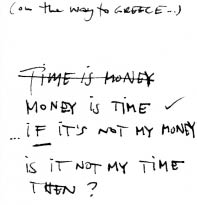 (on the way to GREECE...)
TIME is MONEY
MONEY is TIME ✓
... IF IT'S NOT MY MONEY
is IT NOT MY TIME
THEN ?